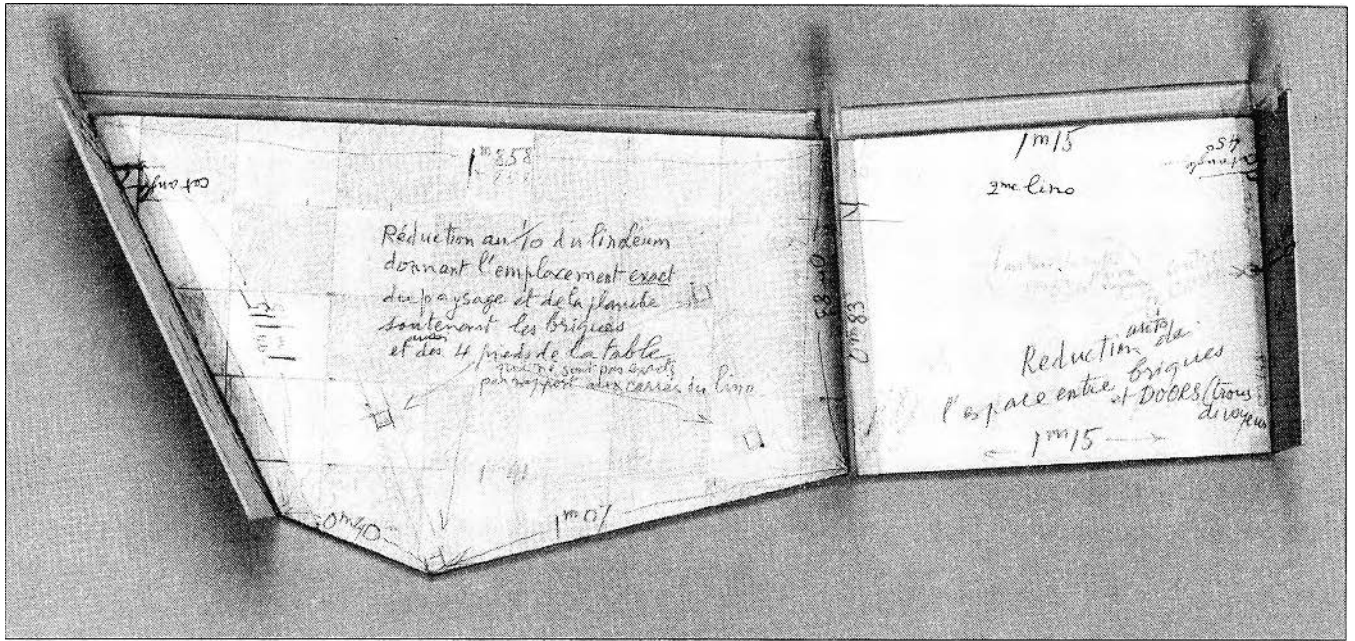 1m858
Réduction au 1/10 du linoleum
donnant l'emplacement exact
du paysage et de la planche
soutenant les briques
et des 4 pieds de la table
qui ne sont pas exacts
par rapport aux carrés du lino.
1m15
0m40
1m41
1m07
0m83
0m83
1m15
2me lino
450
Reduction au 1/10 de
l'espace entre briques
et DOORS (trous
de voyeur
1m15